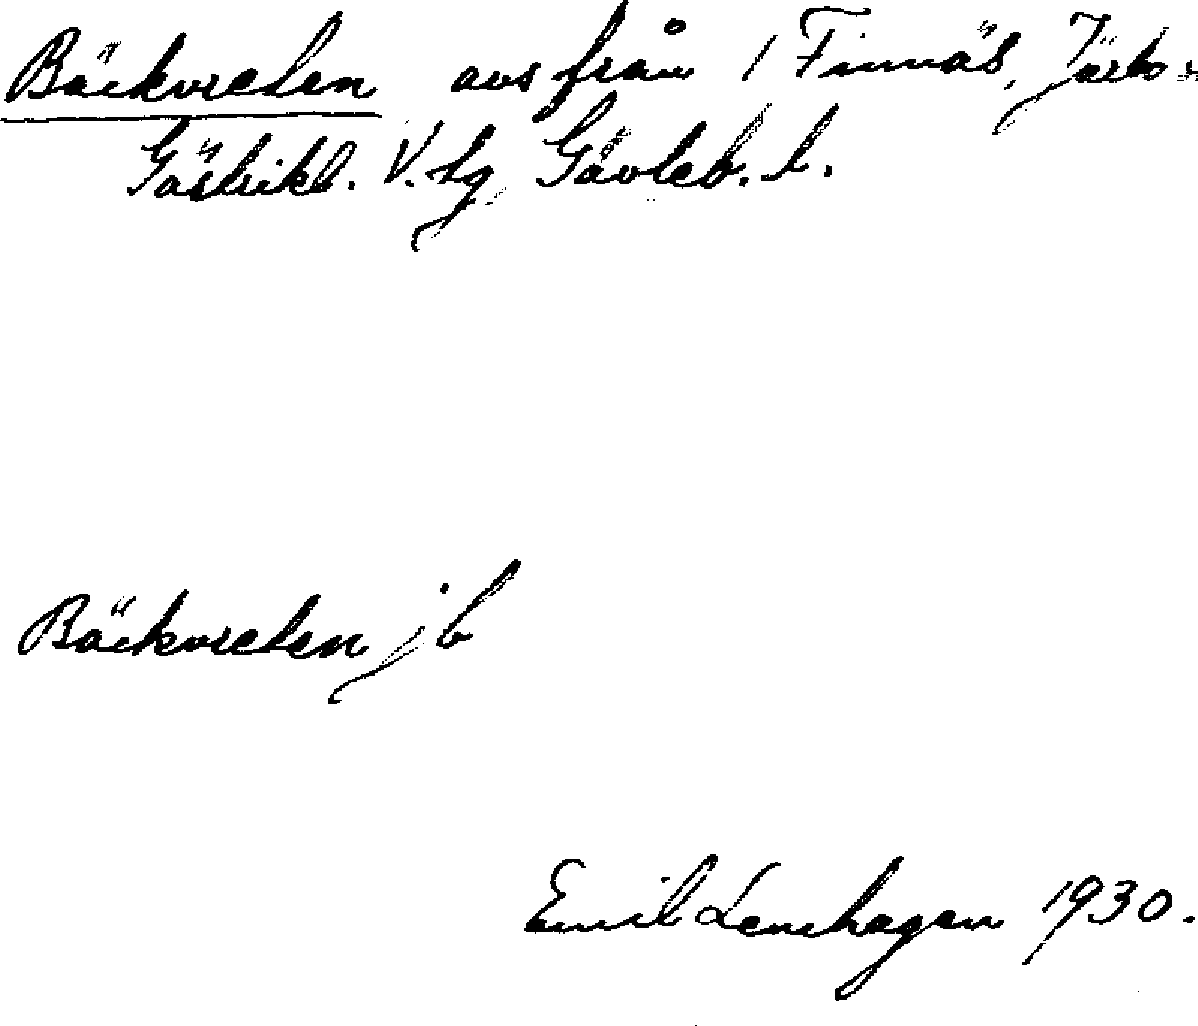 Bäckvreten avs från 1 Finnäs, Järbo sn
Gästrikl. V. tg Gävleb. l.
Bäckvreten jb
Emil Lenhagen 1930.